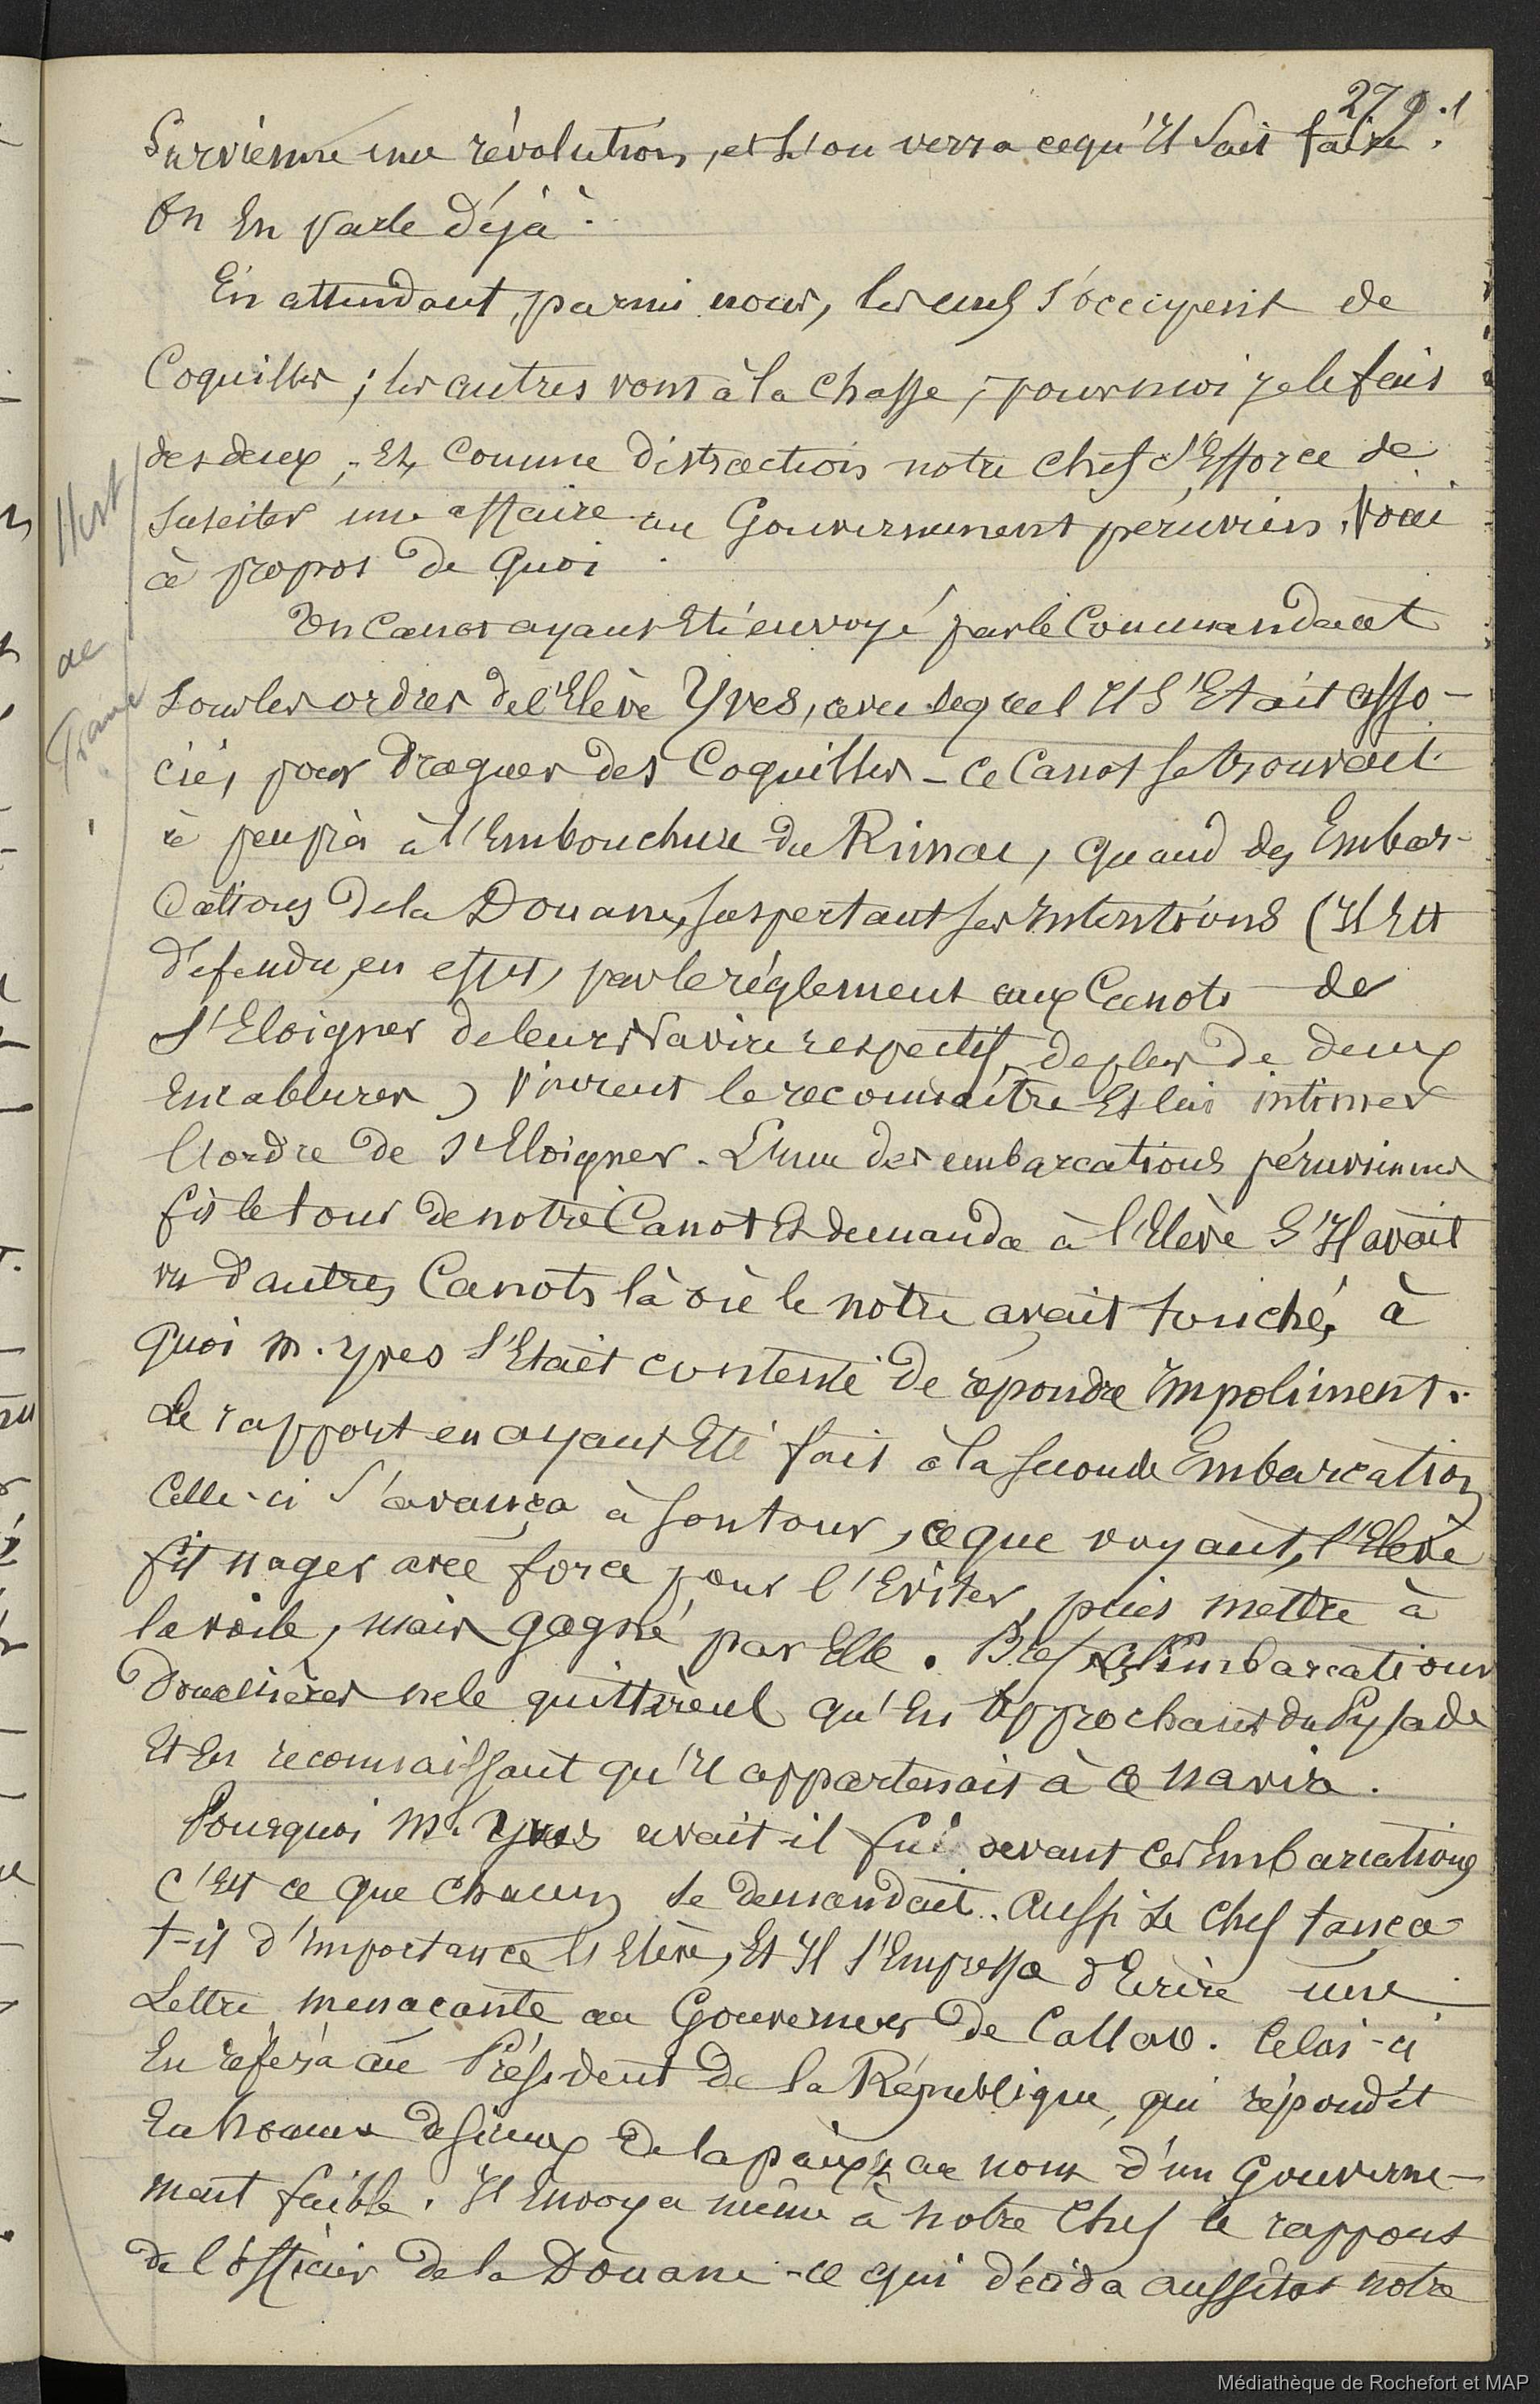 279.1
Survienne une révolution, et L'on verra cequ'Il Sait faire.
On En parle Déjà.
En attendant, parmi nous, les uns s'occupent de
Coquilles ; les autres vont à la Chasse, pour moi je le fais
des deux ; Et, Comme Distraction notre chef S'Efforce de
Susciter une affaire au Gouvernement péruvien. Voici
à propos De Quoi.
Un Canot ayant Eté envoyé par le Commandant
Sous les ordres del'Elève Yves, avec lequel Il S'Etait asso-
cié, pour Draguer des Coquilles - Ce Canot se trouvait
à peu près à l'Embouchure du Rimac, Quand des Embar-
Cations Dela Douane, suspectant ses Intentions (Il Est
Défendu, en effet, par le règlement aux Canots de
S'Eloigner deleur Navire respectif, deplus De deux
Encablures) Vinrent le reconnaître Et lui intimer
l'ordre de s'Eloigner. L'une des embarcations péruviennes
fit le tour denotre Canot Et demanda à l'Elève S'Il avait
vu D'autres Canots là où le notre avait touché, à
Quoi M. Yves S'Etait contenté De répondre Impoliment.
Le rapport en ayant Eté fait à la seconde Embarcation
Celle-ci S'avança à sontour, ce que voyant, l'Elève
fit nager avec force pour l'Eviter, puis mettre à
la voile, mais gagné par Elle. Bref les Embarcations
Douanières nele quittèrent qu'En approchant du Pylade
Et En reconnaissant qu'Il appartenait à ce navire.
Pourquoi M. Yves avait-il fui devant ces Embarcations
C'Est ce que Chacun se demandait. Aussi Le Chef tança-
t-il d'Importance l'Elève, Et Il S'Empressa d'Ecrire une
Lettre menaçante au Gouverneur De Callao. Celui-ci
En référa au Président De la République, qui répondit
En homme desireux De la paix, au nom d'un Gouverne-
ment faible. Il Envoya même à notre Chef le rapport
de l'officier De la Douane - ce qui décida aussitôt notre
de
Médiathèque de Rochefort et MAP